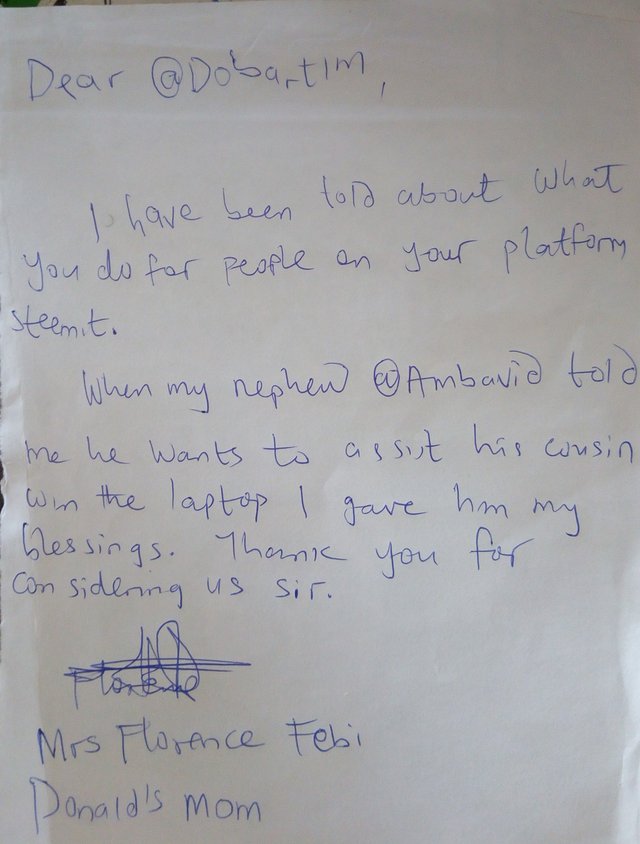 Dear @Dobartim,
I have been told about what
you do for people on your platform
steemit.
When my nephew @Ambavid told
me he wants to assist his cousin
win the laptop I gave him my
blessings. Thank you for
considering us sir.
Florence
Mrs Florence Febi
Donald's mom